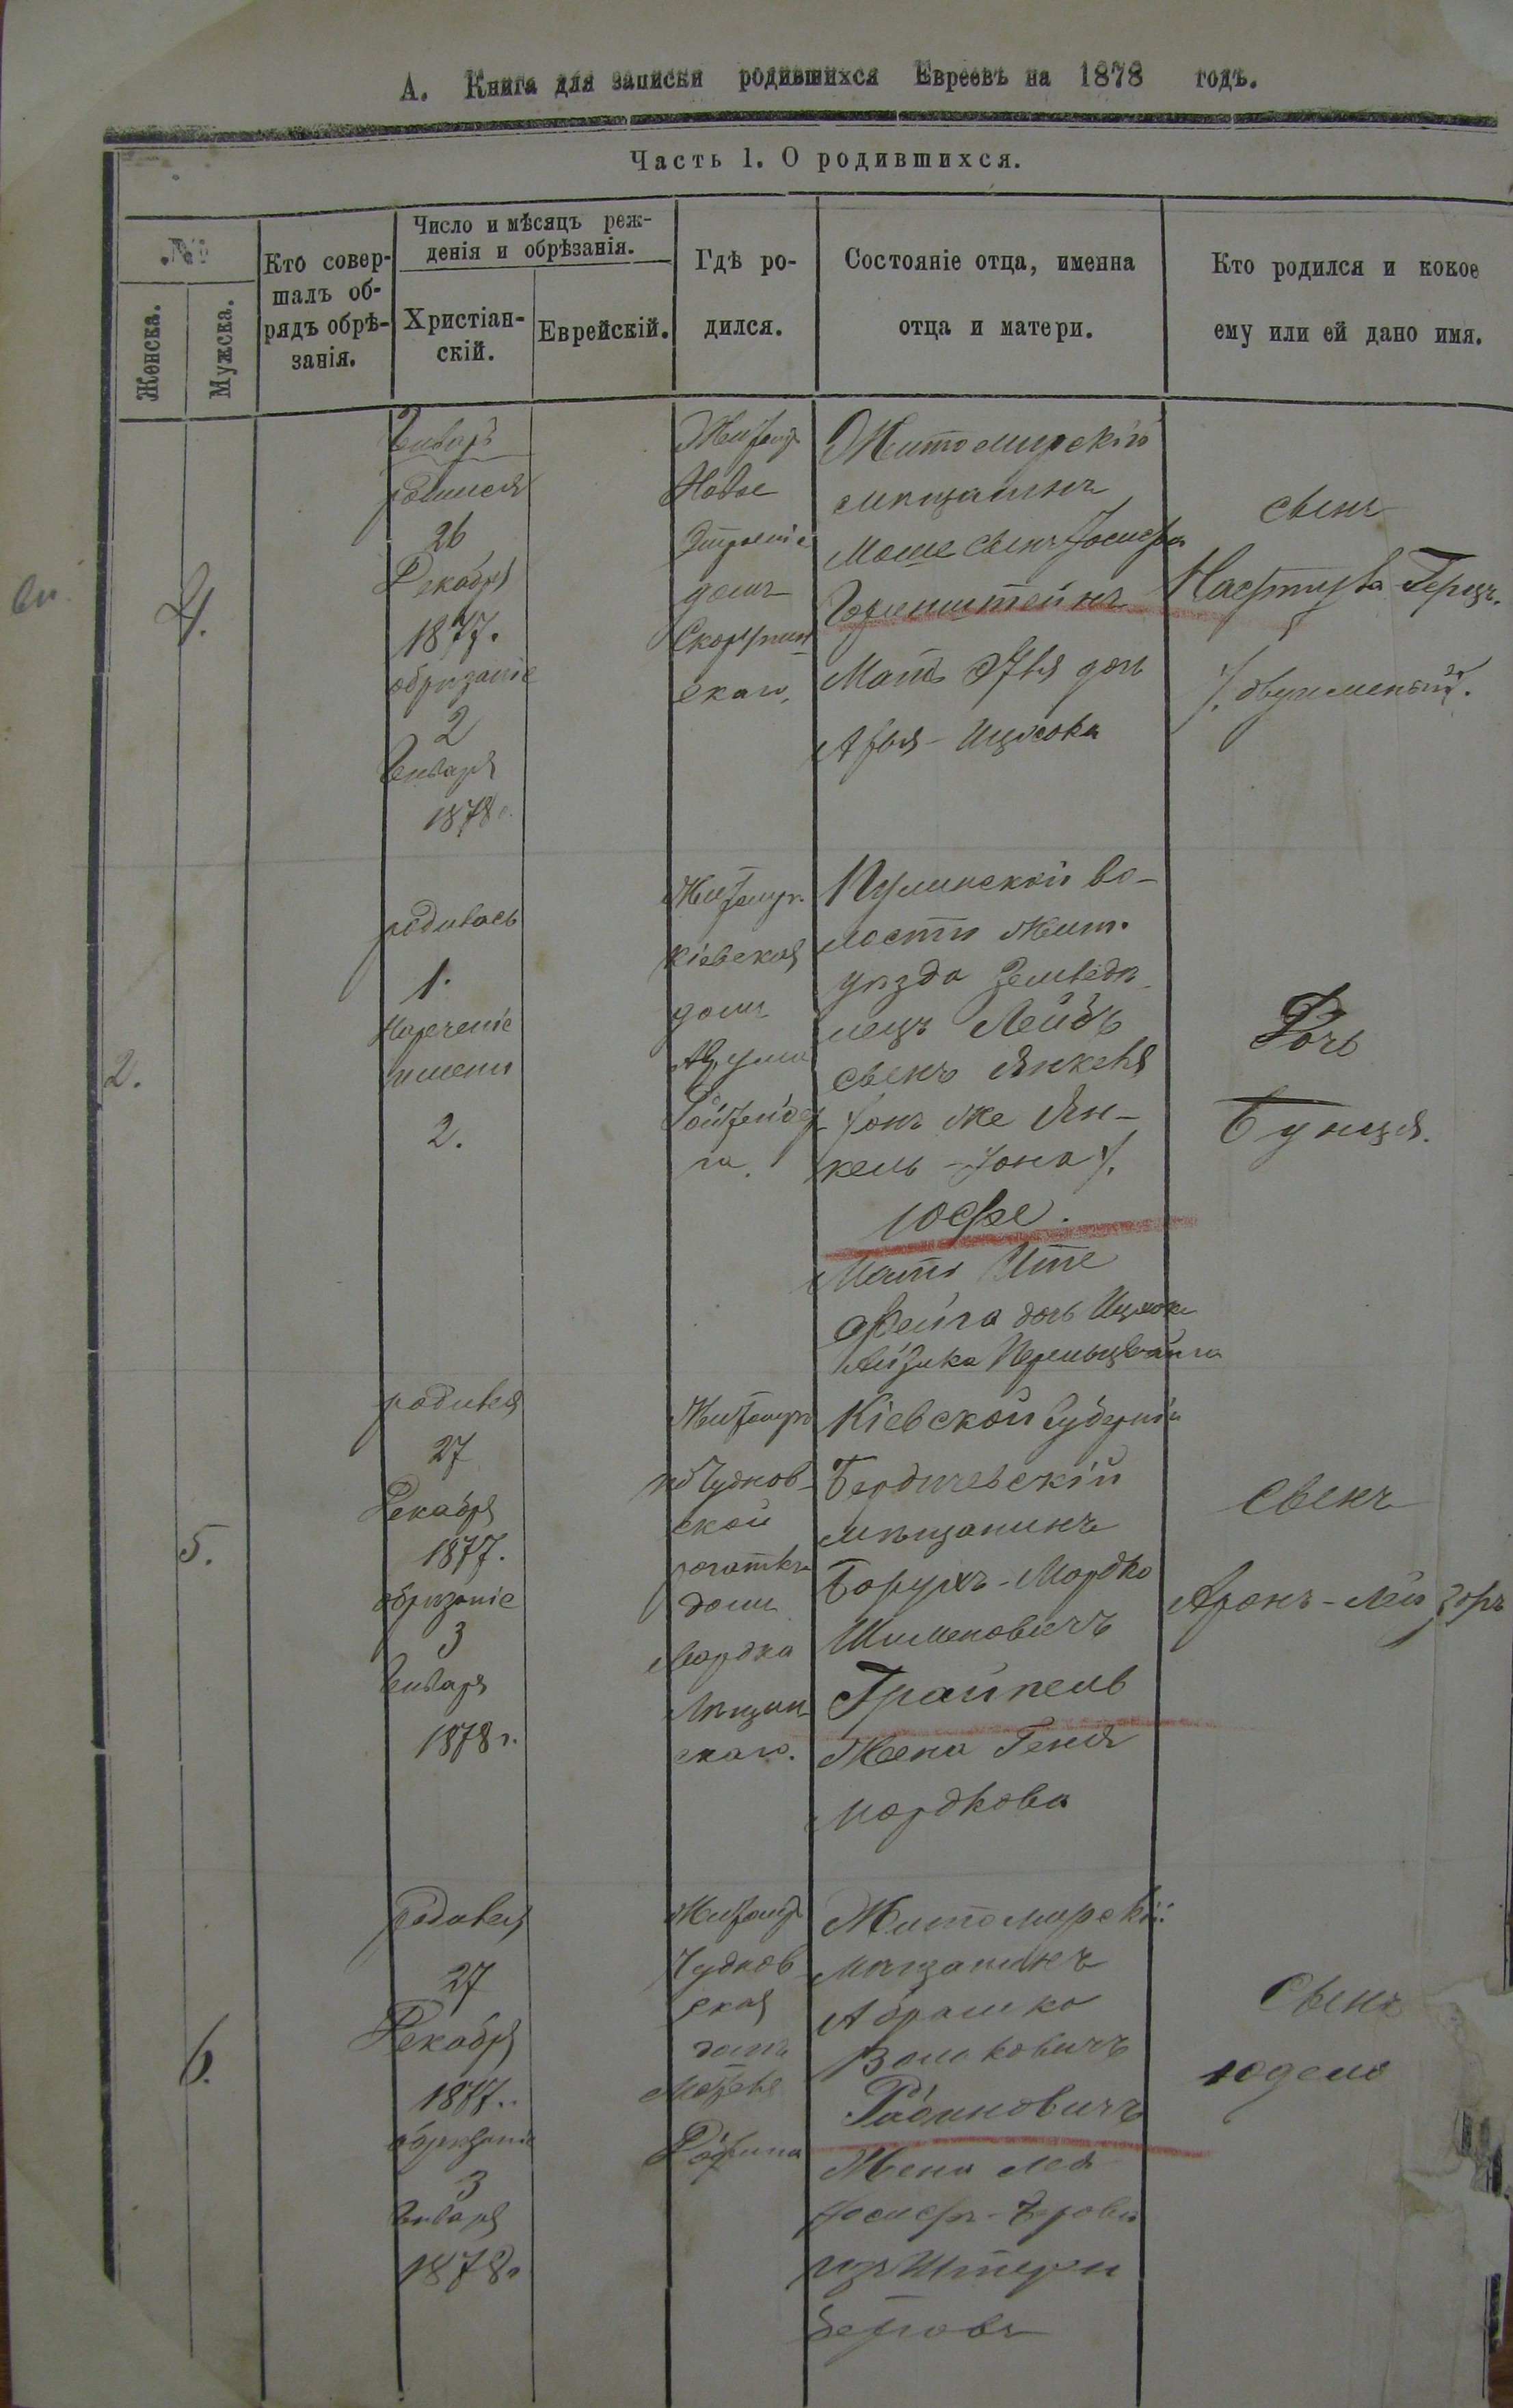 А. Книга для записки родившихся Евреевъ на 1878 годъ.
Часть 1. О родившихся.
№
Женска.
Мужска.
Кто совер-
шалъ об-
рядъ обрѣ-
занія.
Число и мѣсяцъ рож-
денія и обрѣзанія.
Христіан-
скій.
Еврейскій.
Гдѣ ро-
дился.
Состояніе отца, именна
отца и матери.
Кто родился и кокое
ему или ей дано имя.
4.
Январь
родился
26
Декабря
1877.
обрѣзаніе
2
Января
1878 г.
Житомиръ
Новое
Строеніе
домъ
скаго.
Житомирскій
мѣщанинъ
Моше сынъ Іосифа
Горенштейнъ
Мать дочь
Арья - Ицкова
сынъ
Герцъ.
2.
родилась
1.
Нареченіе
имени
2.
Житомиръ
Кіевская
домъ
Пулинской во-
лости Жит.
уѣзда Земледѣ-
лецъ Лейбъ
сынъ Янкеля
/онъ же Ян-
кель - Іона/.
Юффе.
Мать Ите
Фейга дочь Ицко
Айзика
Дочь
Бунця.
5.
родился
27
Декабря
1877.
обрѣзаніе
3
Января
1878 г.
Житомиръ
по Чуднов-
ской
рогаткѣ
домъ
Мордка
скаго.
Кіевской Губерніи
Бердичевскій
мѣщанинъ
Борухъ - Мордко
Шимоновичъ
Грайпель
Жена Геня
Мордкова
сынъ
Аронъ - Лейзоръ
6.
родился
27
Декабря
1877.
обрѣзаніе
3
Января
1878 г.
Житомиръ
Чуднов
ская
домъ
Житомирскій
мѣщанинъ
Абрамко
Волковичъ
Рабиновичъ
Жена Лея
Іосифъ - Берова
Сынъ
Юдель